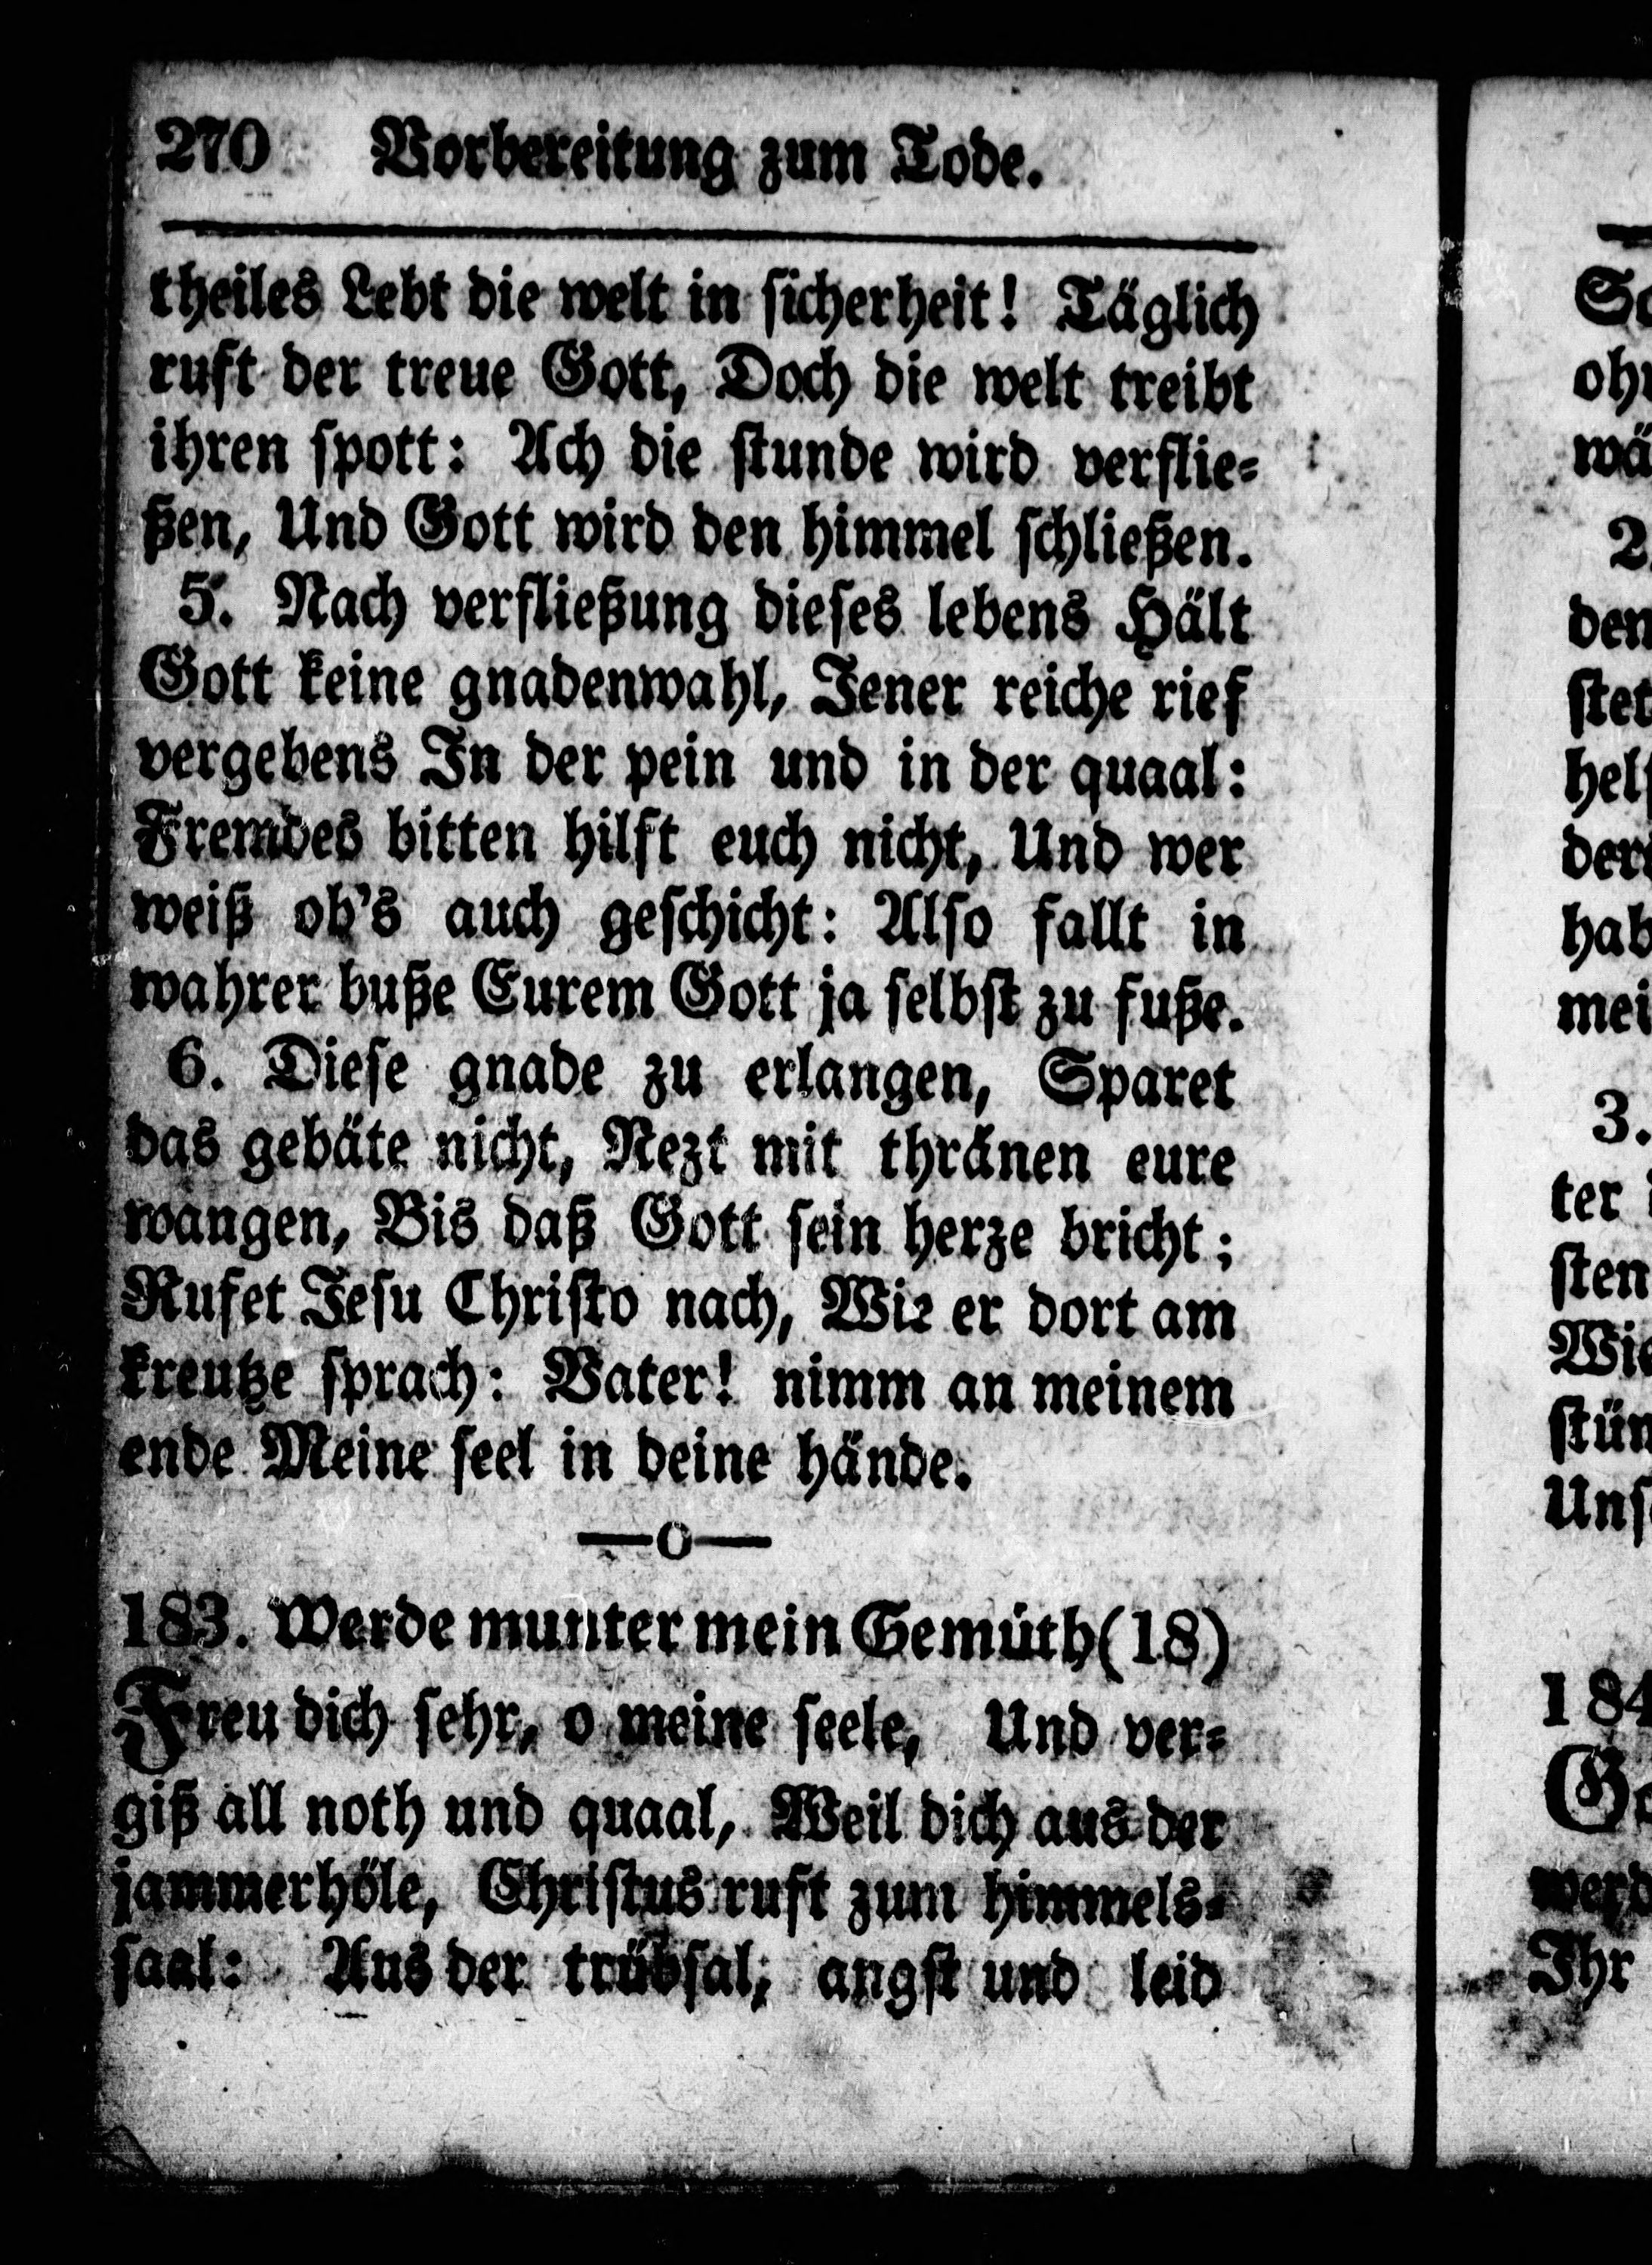 270 Vorbereitung zum Tode.
theiles Lebt die welt in sicherheit! Täglich
ruft der treue Gott, Doch die welt treibt
ihren spott: Ach die stunde wird verflie=
ßen, Und Gott wird den himmel schließen.
5. Nach verfließung dieses lebens Hält
Gott keine gnadenwahl, Jener reiche rief
vergebens In der pein und in der quaal:
Fremdes bitten hilft euch nicht, Und wer
weiß ob's auch geschicht: Also fallt in
wahrer buße Eurem Gott ja selbst zu fuße.
6. Diese gnade zu erlangen, Sparet
das gebäte nicht, Nezt mit thränen eure
wangen, Bis daß Gott sein herze bricht;
Rufet Jesu Christo nach, Wie er dort am
kreutze sprach: Vater! nimm an meinem
ende Meine seel in deine hände.
—o—
183. Werde munter mein Gemüth(18)
Freu dich sehr, o meine seele, Und ver=
giß all noth und quaal, Weil dich aus der
jammerhöle, Christus ruft zum himmels=
saal: Aus der trübsal, angst und leid
So
ohn
wä
2.
den
stet
helf
der
hab
mei
3.
ter
sten
Wie
stün
Uns
184
Ge
werd
Ihr